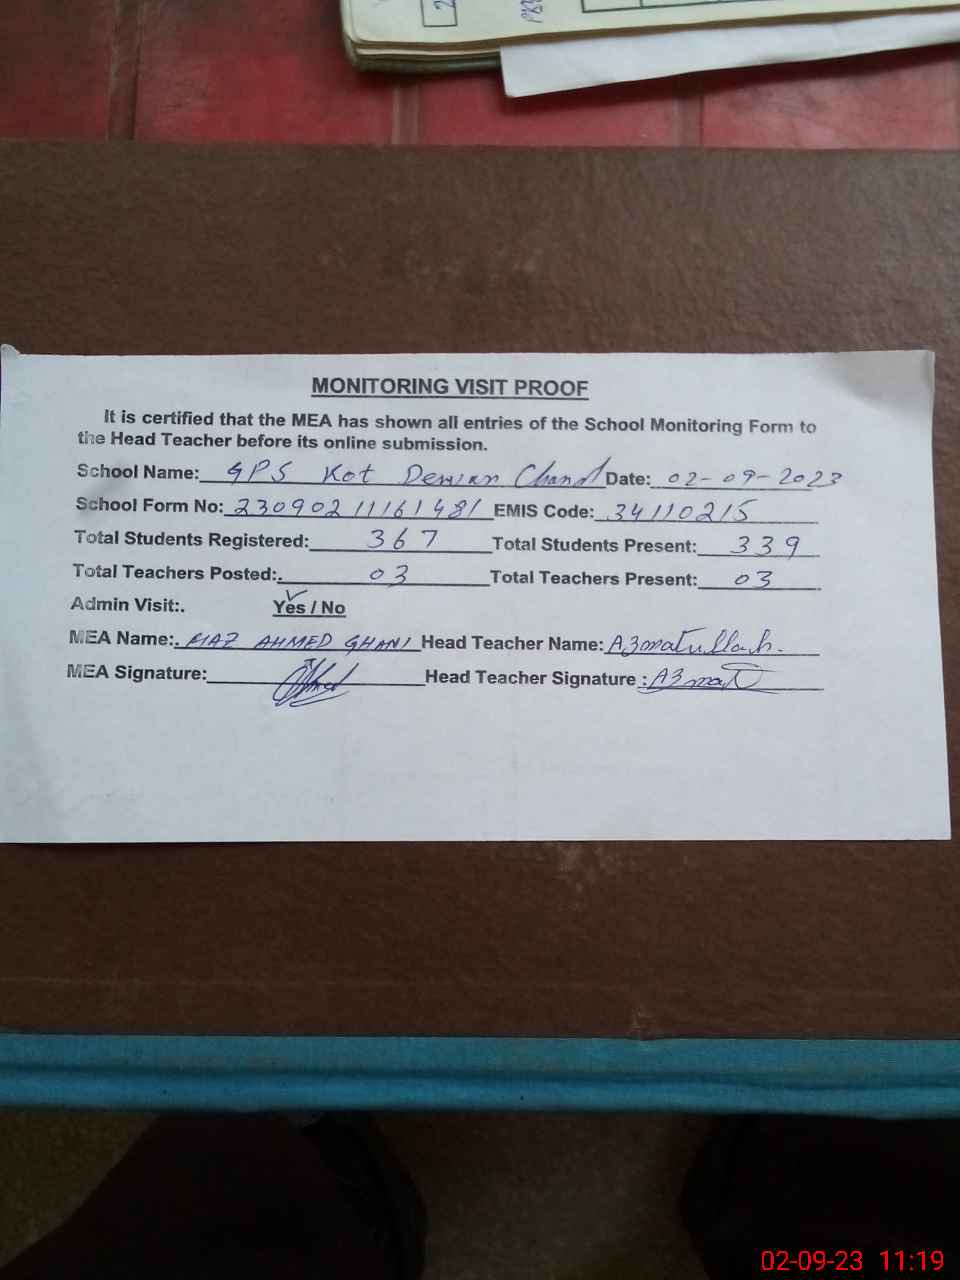 MONITORING VISIT PROOF
It is certified that the MEA has shown all entries of the School Monitoring Form to
the Head Teacher before its online submission.
School Name: GPS Kot Dewan Chand Date: 02-09-2023
School Form No: 23090211161481 EMIS Code: 34110215
Total Students Registered: 367 Total Students Present: 339
Total Teachers Posted:. 03 Total Teachers Present: 03
Admin Visit:. Yes / No
MEA Name:. AHMED GHANI Head Teacher Name: A3matullah.
MEA Signature: Head Teacher Signature : A3mat
02-09-23 11:19